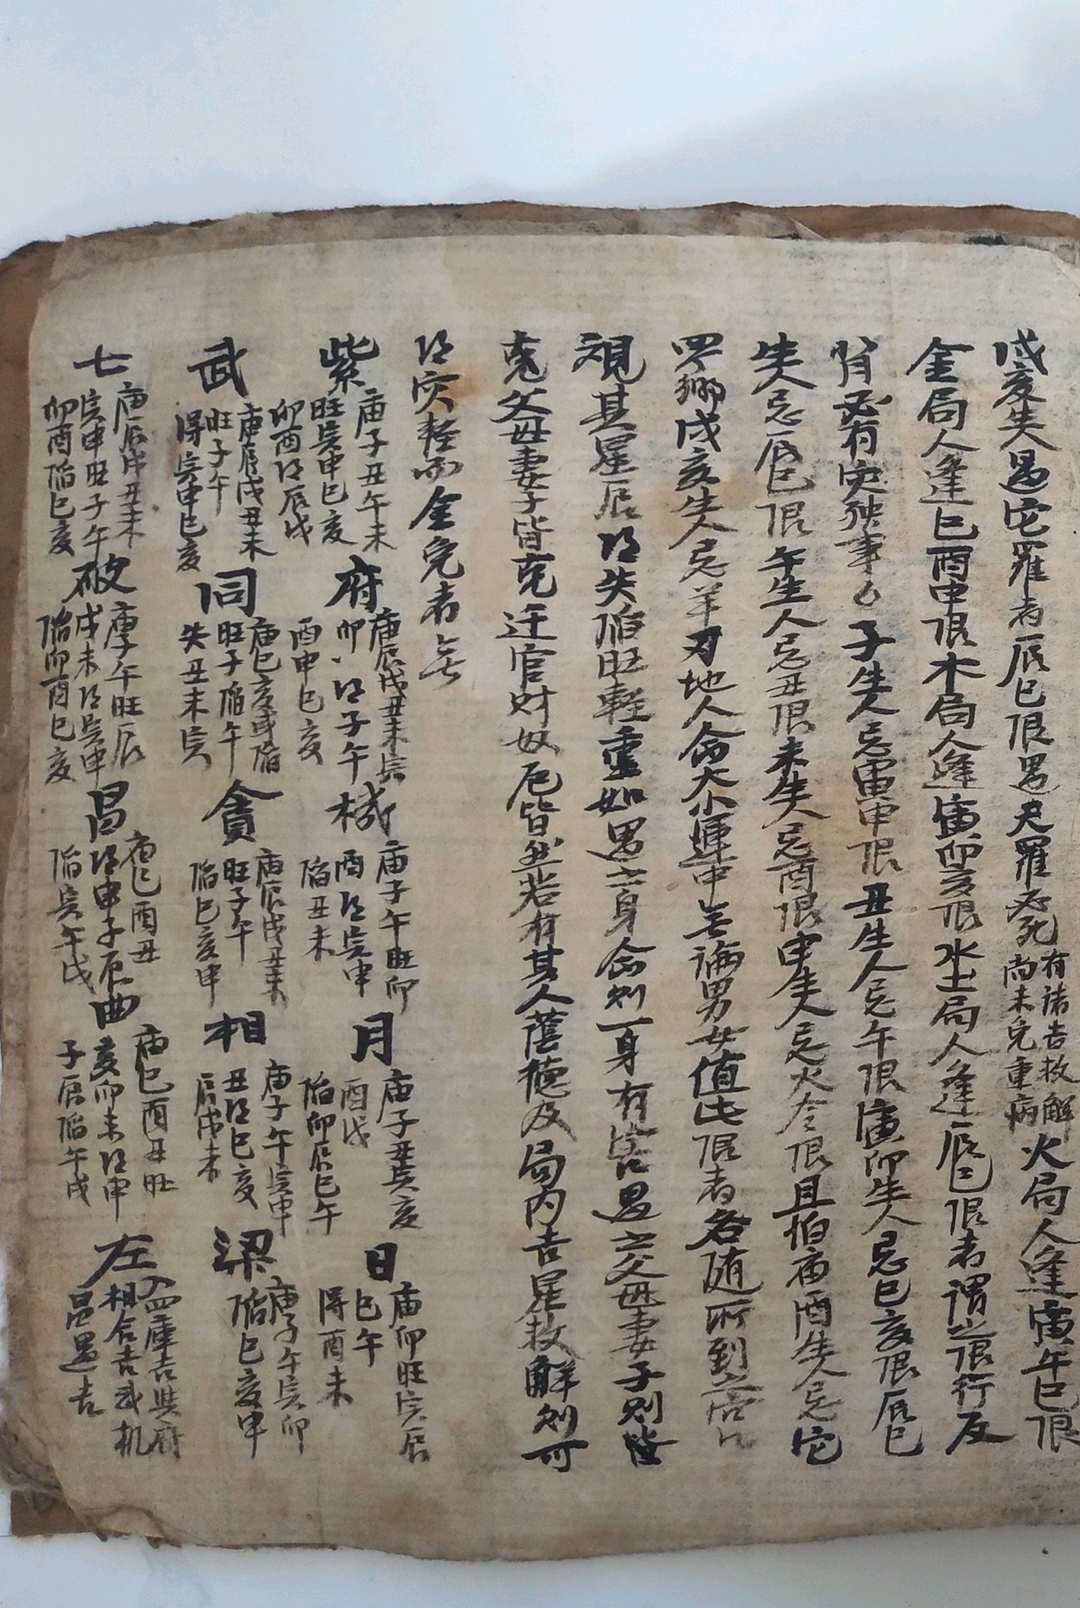 戌亥生人遇陀羅者辰巳限遇天羅必死有諸吉救解尚未免重病火局人逢寅午巳限
金局人逢巳酉申限木局人逢寅卯亥限水土局人逢辰巳限者謂之限行反
背必有灾殃事也子生人忌寅申限丑生人忌午限寅卯生人忌巳亥限辰巳
生人忌辰巳限午生人忌丑限未生人忌酉限申生人忌火令限且怕庙酉生人忌它
戌亥生人忌羊刃地人命大小運中无論男女值此限者各随所到宫
視其星辰得失陷旺輕重如遇之身命則一身有害遇之父母妻子則
克父母妻子皆克迁官財奴厄皆然若有其人蔭德及局内吉星救解則可
得灾輕而全免者无
紫
庙子丑午未
旺寅申巳亥
卯酉得辰戌
府
庙辰戌丑未寅
卯得子午
酉申巳亥
機
庙子午旺卯
酉得寅申
陷丑未
月
庙子丑亥
酉戌
陷卯辰巳午
日
庙卯旺寅辰
巳午
得酉未
武
庙辰戌丑未
旺子午
得寅申巳亥
同
庙巳亥
旺子陷午
失丑未寅
貪
庙辰戌丑未
旺子午
陷巳亥申
相
庙子午寅申
丑得巳亥
辰戌未
梁
庙子午寅卯
陷巳亥申
七
庙辰戌丑未
寅申旺子午
卯酉陷巳亥
破
庙子午旺辰
戌未得寅申
陷卯酉巳亥
昌
庙巳酉丑
得申子辰
陷寅午戌
曲
庙巳酉丑旺
亥卯未得申
子辰陷午戌
左
入四庫吉與府
相合吉武机
昌遇吉